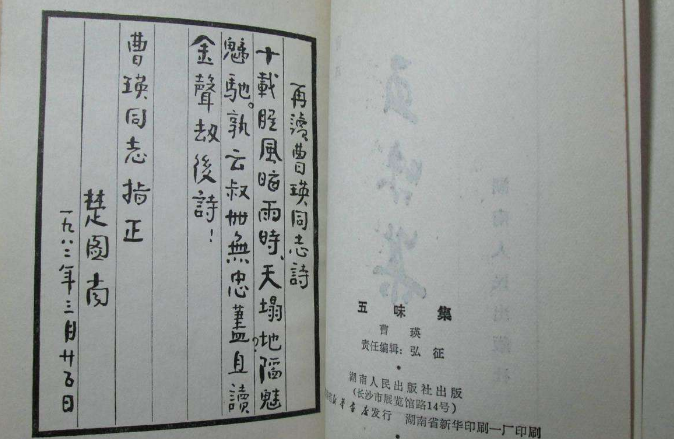 再讀曹瑛同志詩
十載腥風暗雨時、天塌地陷魅
魑馳。孰云叔世無忠藎?且讀
金聲劫後詩!
曹瑛同志指正
楚圖南
一九八二年三月廿五日
五味集
曹瑛
责任编辑：弘征
湖南人民出版社出版
(长沙市展览馆路14号)
新华书店发行 湖南省新华印刷一厂印刷